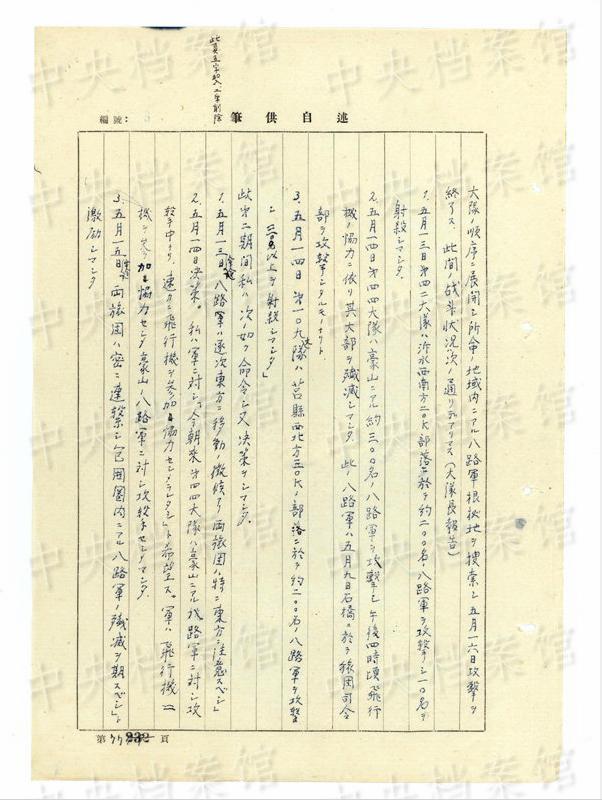 此頁五字挿入二字削除
編號:
筆供自述
大隊ノ順序ニ展開シ所命ノ地域内ニアル八路軍根拠地ヲ捜索シ五月一六日攻撃ヲ
終了ス 此間ノ战斗状況次ノ通リデアリマス(大隊長報告)
1. 五月一三日第四二大隊ハ沂水西南方二〇K部落ニ於テ約二〇〇名ノ八路軍ヲ攻撃シ一〇名ヲ
射殺シマシタ.
2. 五月一四日第四四大隊ハ豪山ニアル約三〇〇名ノ八路軍ヲ攻撃シ午後四時頃飛行
機ノ協力ニ依リ其大部ヲ殲滅シマシタ 此ノ八路軍ハ五月九日石橋ニ於テ旅団司令
部ヲ攻撃シタルモノナリト.
3. 五月一四日第一〇九大隊ハ莒縣西北方三〇Kノ部落ニ於テ約二〇〇名ノ八路軍ヲ攻撃
シ 三〇名以上ヲ射殺シマシタ」
此第二期間私ハ次ノ如ク命令シ又決策ヲシマシタ.
1. 五月一三日命令 八路軍ハ逐次東方ニ移動ノ徴候アリ両旅団ハ特ニ東方ニ注意スベシ」
2. 五月一四日決策。私ハ軍ニ対シ「今朝来第四四大隊ハ豪山ニアル八路軍ニ対シ攻
撃中ナリ.速カニ飛行機ヲ参加シ協力センメラレタシ」ト希望ス。軍ハ飛行機一
機ヲ参加シ協力センメ豪山ノ八路軍ニ対シ攻撃センメマシタ.
3. 五月一五日命令 両旅団ハ密ニ連繋シ包囲圏内ニアル八路軍ノ殲滅ヲ期スベシ」ト
激励シマシタ
第 頁
中央档案馆